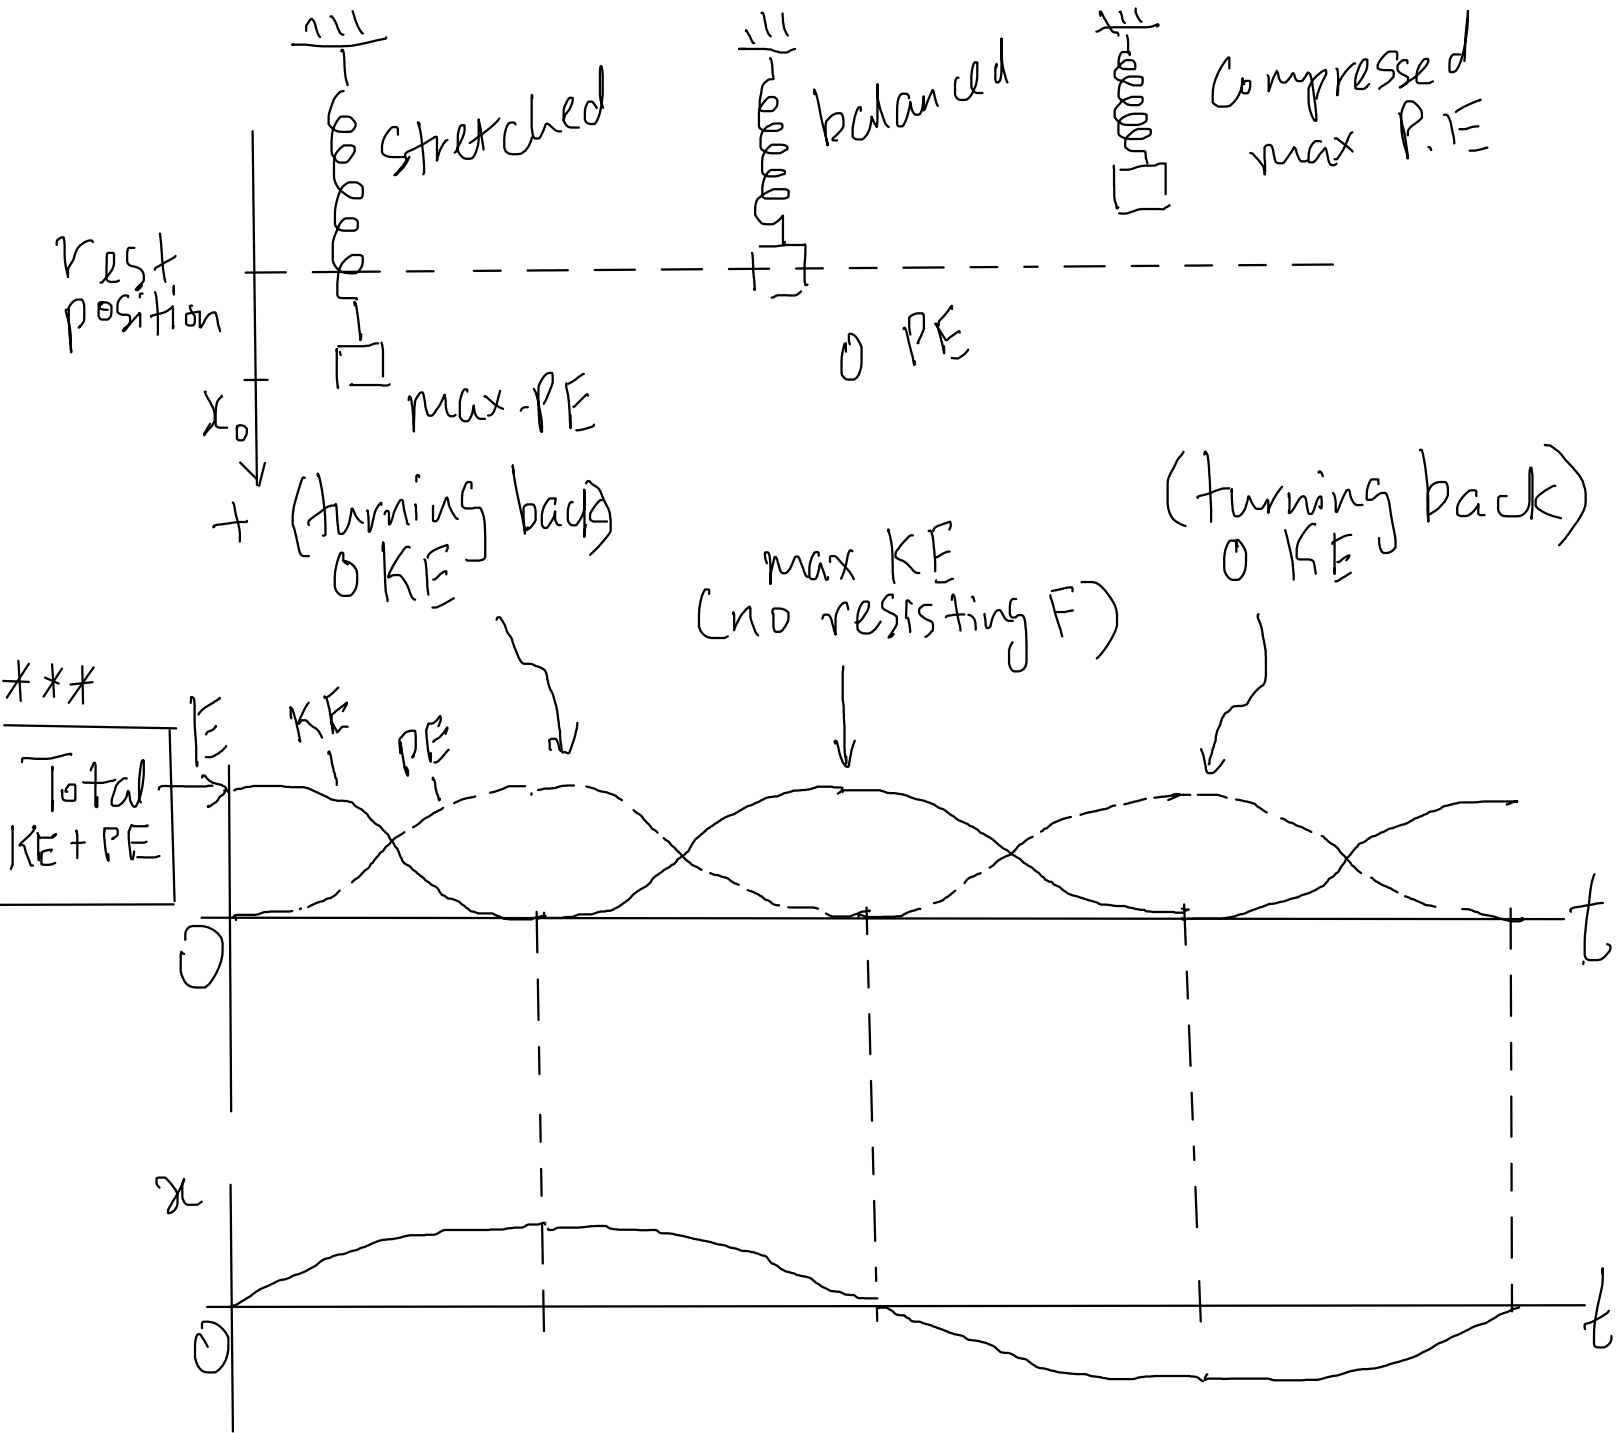 stretched
balanced
Compressed
max P.E
rest
position
0 PE
x₀
max PE
+
(turning back)
0 KE
max KE
(no resisting F)
(turning back)
0 KE
***
E
KE
PE
Total
KE + PE
0
t
x
0
t